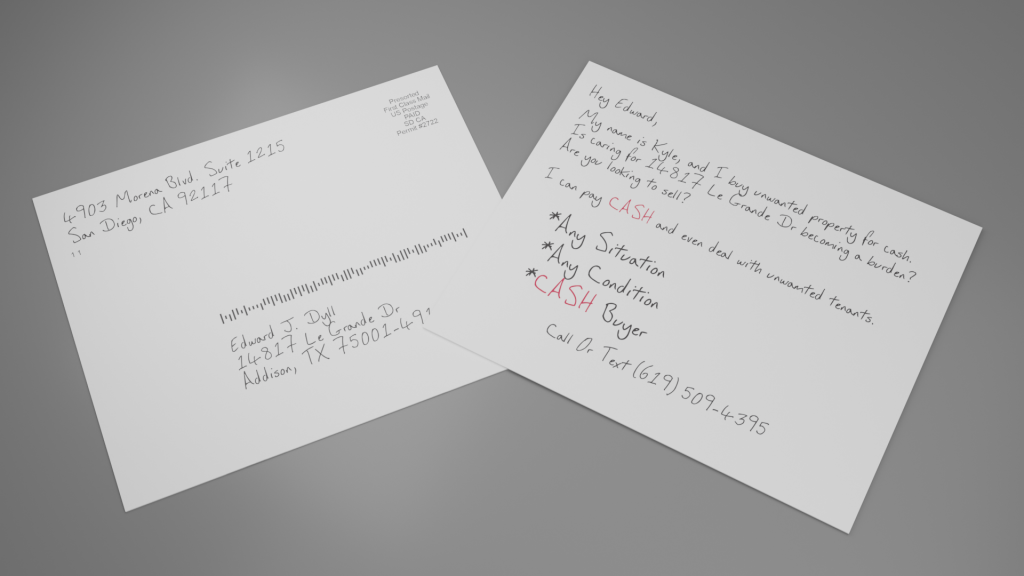 4903 Morena Blvd. Suite 1215
San Diego, CA 92117
Presorted
First Class Mail
US Postage
PAID
SD CA
Permit #2722
Edward J. Dyll
14817 Le Grande Dr
Addison, TX 75001-49
Hey Edward,
My name is Kyle, and I buy unwanted property for cash.
Is caring for 14817 Le Grande Dr becoming a burden?
Are you looking to sell?
I can pay CASH and even deal with unwanted tenants.
*Any Situation
*Any Condition
*CASH Buyer
Call Or Text (619) 509-4395